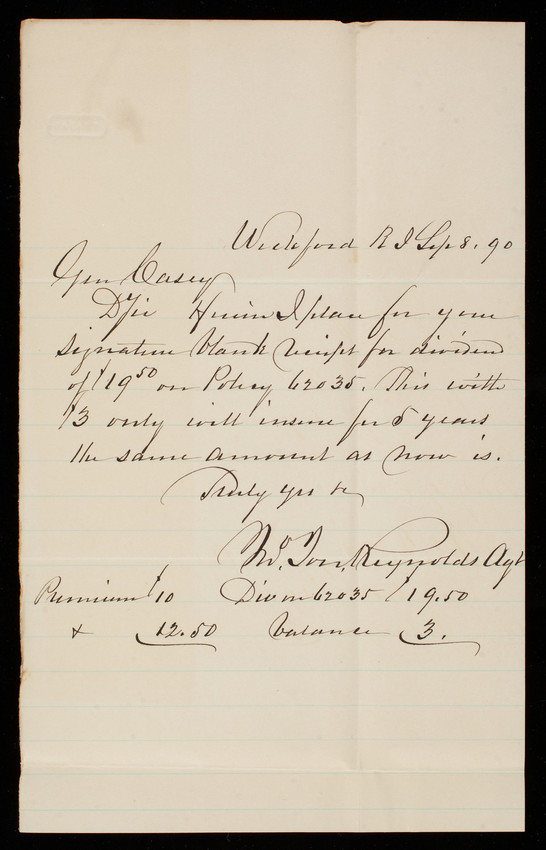 Wickford R I Sep 8. 90
Gen Casey
D Sir Herein I place for your
signature blank receipt for dividend
of $19 50 on Policy 62035. This with
$3 only will insure for 5 years
the same amount as now is.
Truly yrs &c
Reynolds Agt
Premium $10 Div on 62035 $19.50
& 12.50 balance 3.